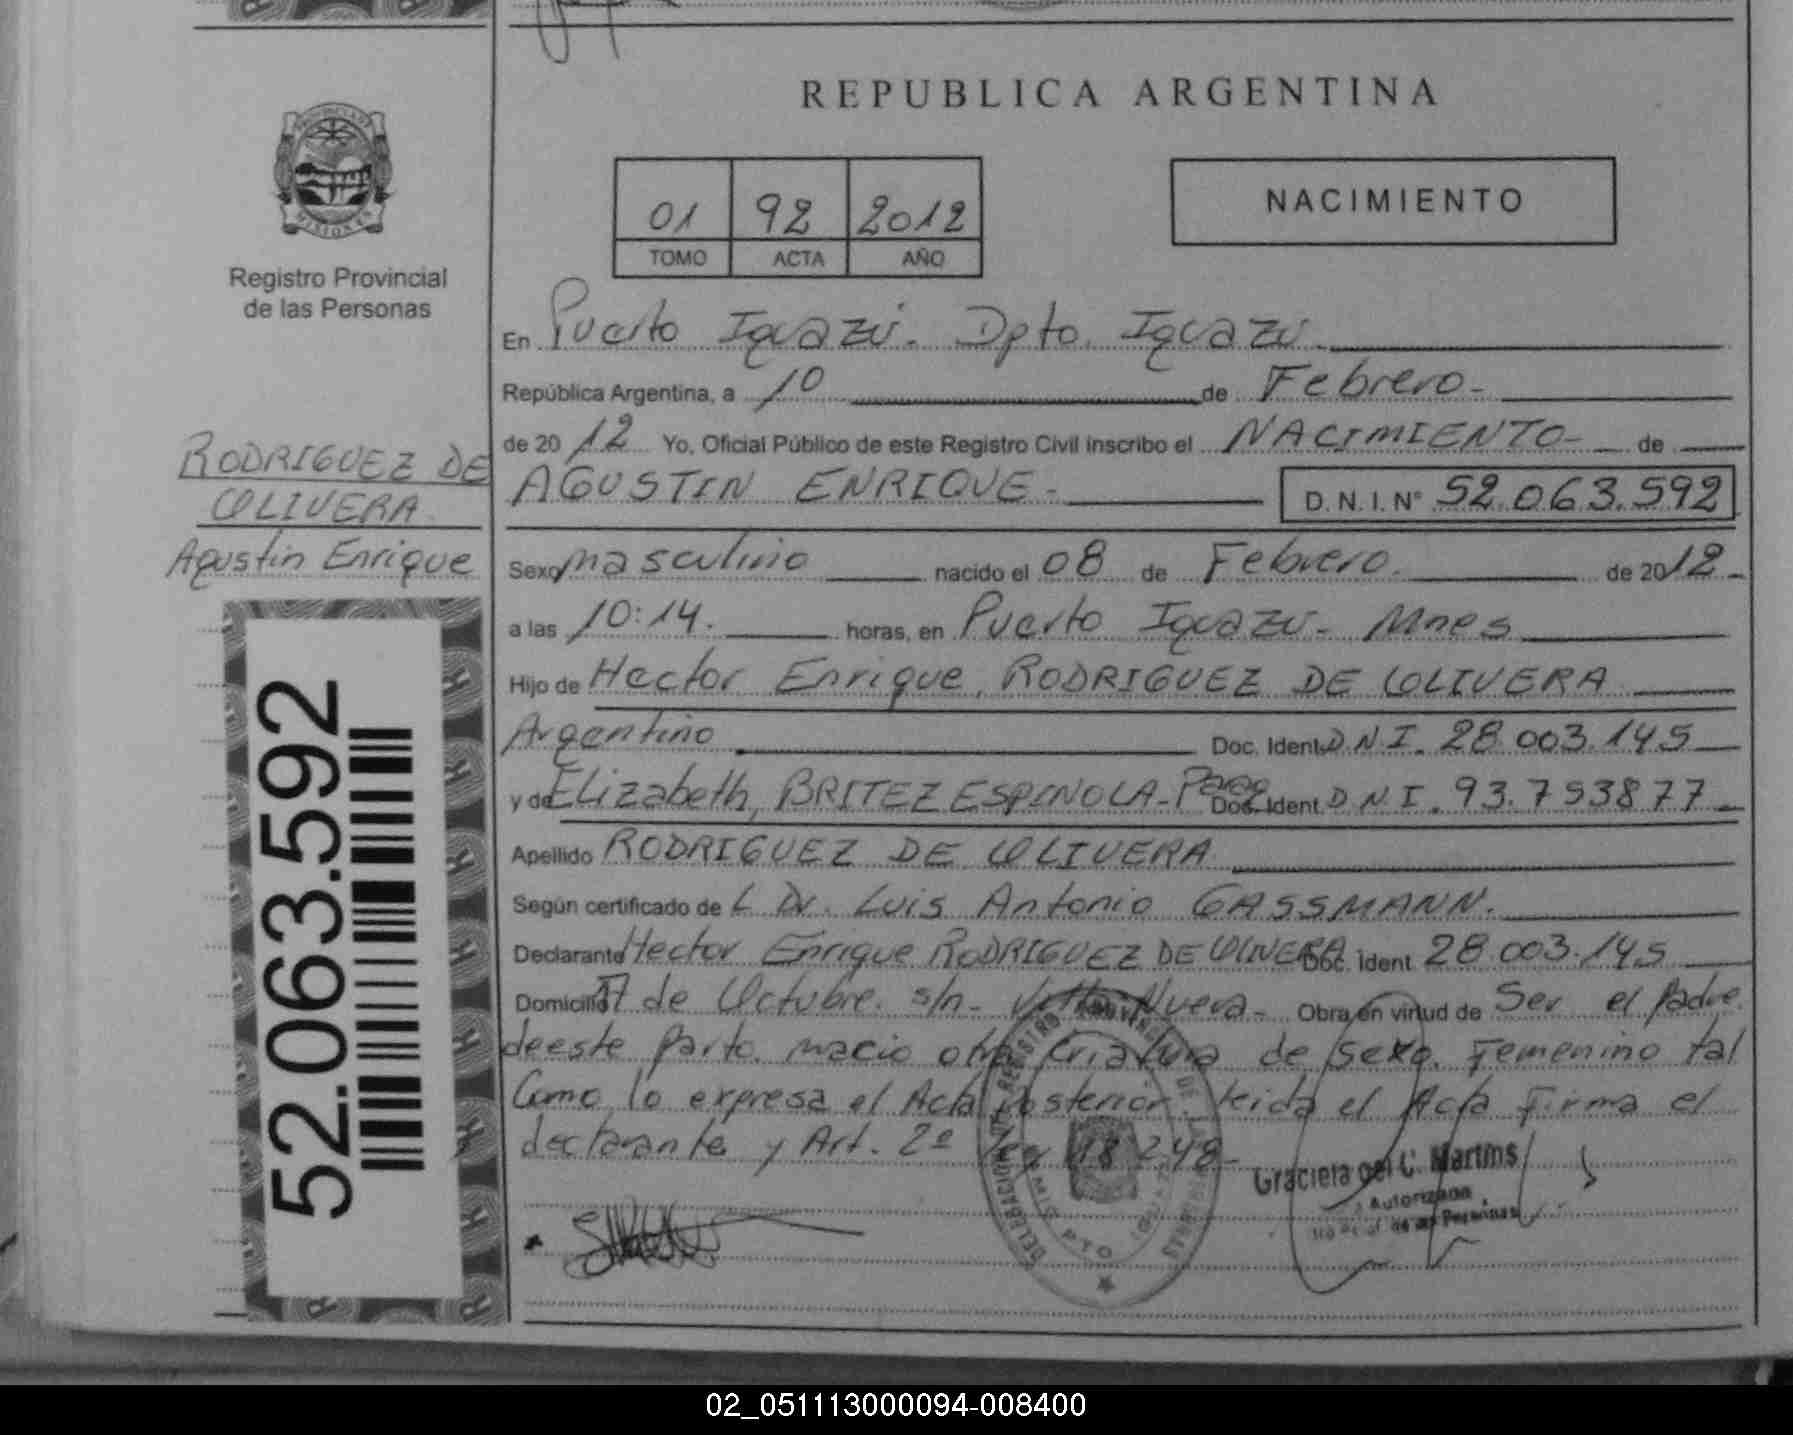 REPUBLICA ARGENTINA
PROVINCIA DE
MISIONES
Registro Provincial
de las Personas
01 92 2012
TOMO ACTA AÑO
NACIMIENTO
En Puerto Iguazú. Dpto. Iguazú
República Argentina, a 10 de Febrero-
de 20 12 Yo, Oficial Público de este Registro Civil inscribo el NACIMIENTO- de
AGUSTIN ENRIQUE- D.N.I.N° 52.063.592
RODRIGUEZ DE
OLIVERA
Agustin Enrique
Sexo masculino nacido el 08 de Febrero. de 20 12-
a las 10:14. horas, en Puerto Iguazú- Mnes
Hijo de Hector Enrique, RODRIGUEZ DE OLIVERA
Argentino Doc. Ident. DNI. 28.003.145
y de Elizabeth, BRITEZ ESPINOLA- Parag Doc. Ident. DNI. 93.793877-
Apellido RODRIGUEZ DE OLIVERA
Según certificado de L Dr. Luis Antonio GASSMANN.
Declarante Hector Enrique RODRIGUEZ DE OLIVERA Doc. Ident. 28.003.145
Domicilio 17 de Octubre. s/n- Villa Nueva- Obra en virtud de Ser el Padre.
de este Parto. nacio otra criatura de sexo. Femenino tal
Como lo expresa el Acta Posterior. leida el Acta Firma el
declarante y Art. 2º ley 18.248-
Graciela del C. Martins
Autorizada
de las Personas
52.063.592
02_051113000094-008400